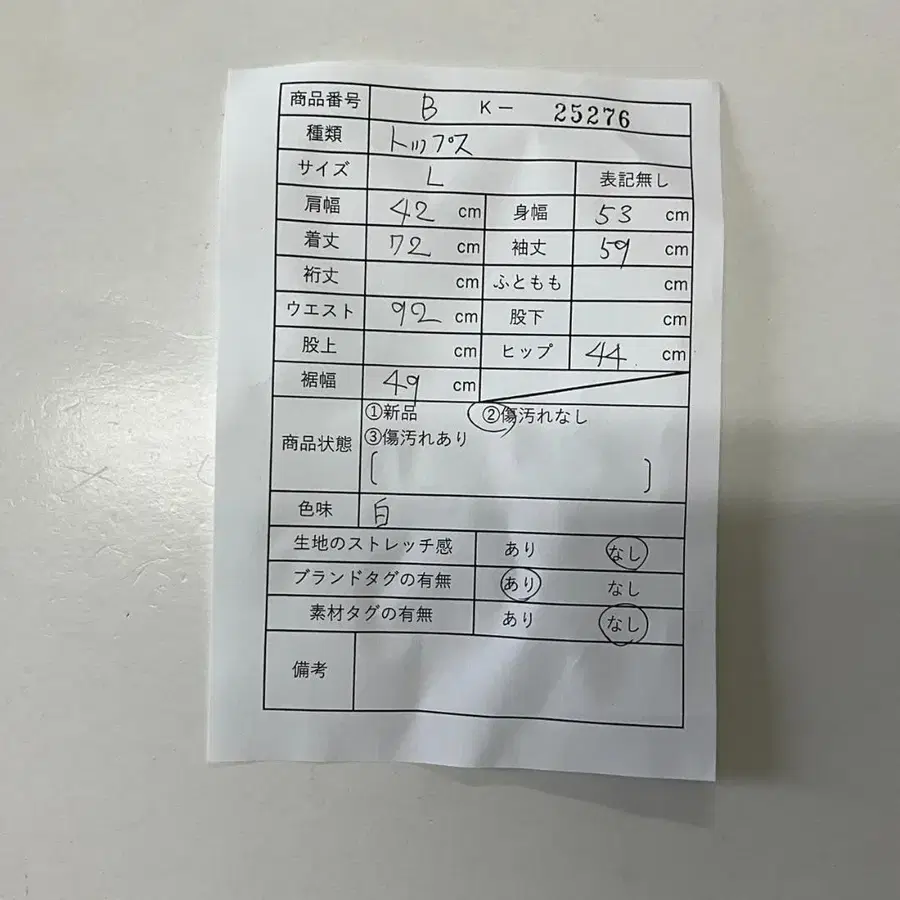 商品番号 B K－ 25276
種類 トップス
サイズ L 表記無し
肩幅 42 cm 身幅 53 cm
着丈 72 cm 袖丈 59 cm
裄丈 cm ふともも cm
ウエスト 92 cm 股下 cm
股上 cm ヒップ 44 cm
裾幅 49 cm
①新品 ②傷汚れなし
商品状態 ③傷汚れあり
[ ]
色味 白
生地のストレッチ感 あり なし
ブランドタグの有無 あり なし
素材タグの有無 あり なし
備考